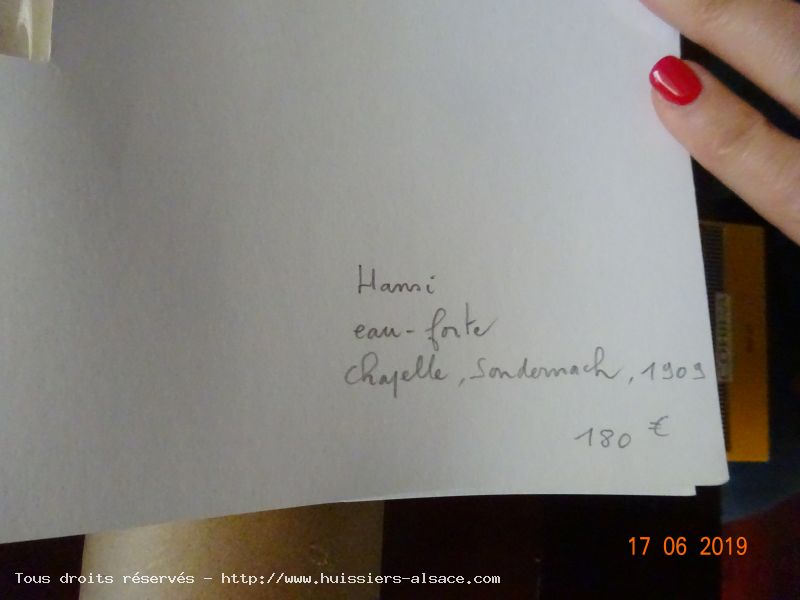 Hansi
eau-forte
Chapelle, Sondernach, 1909
180 €
17 06 2019
Tous droits réservés - http://www.huissiers-alsace.com